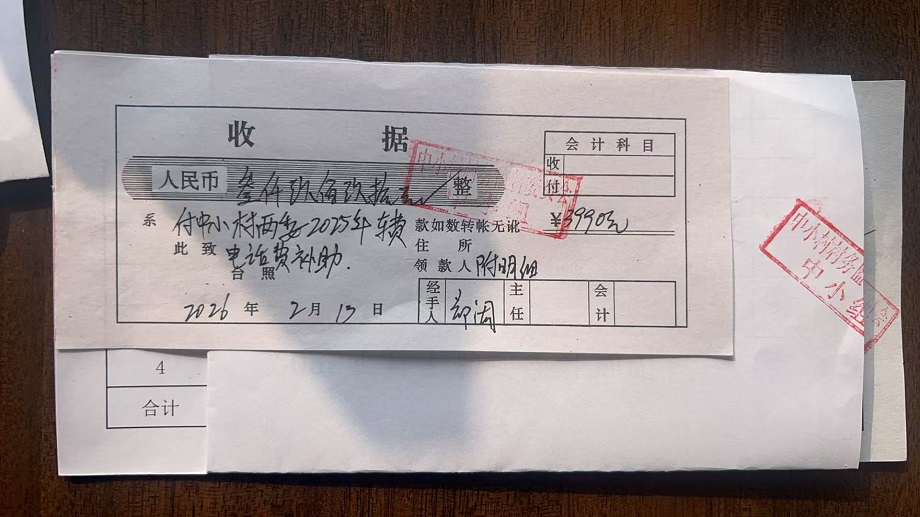 收 据
会计科目
收
付
人民币 叁仟玖佰玖拾元 整
¥3990元
系 付中小村两委2025年 款如数转帐无讹
此致 电话费补助. 住所
台照 领款人 附明细
2026 年 2 月 13 日
经手人
主任
会计
4
合计
中小村村务监
中小